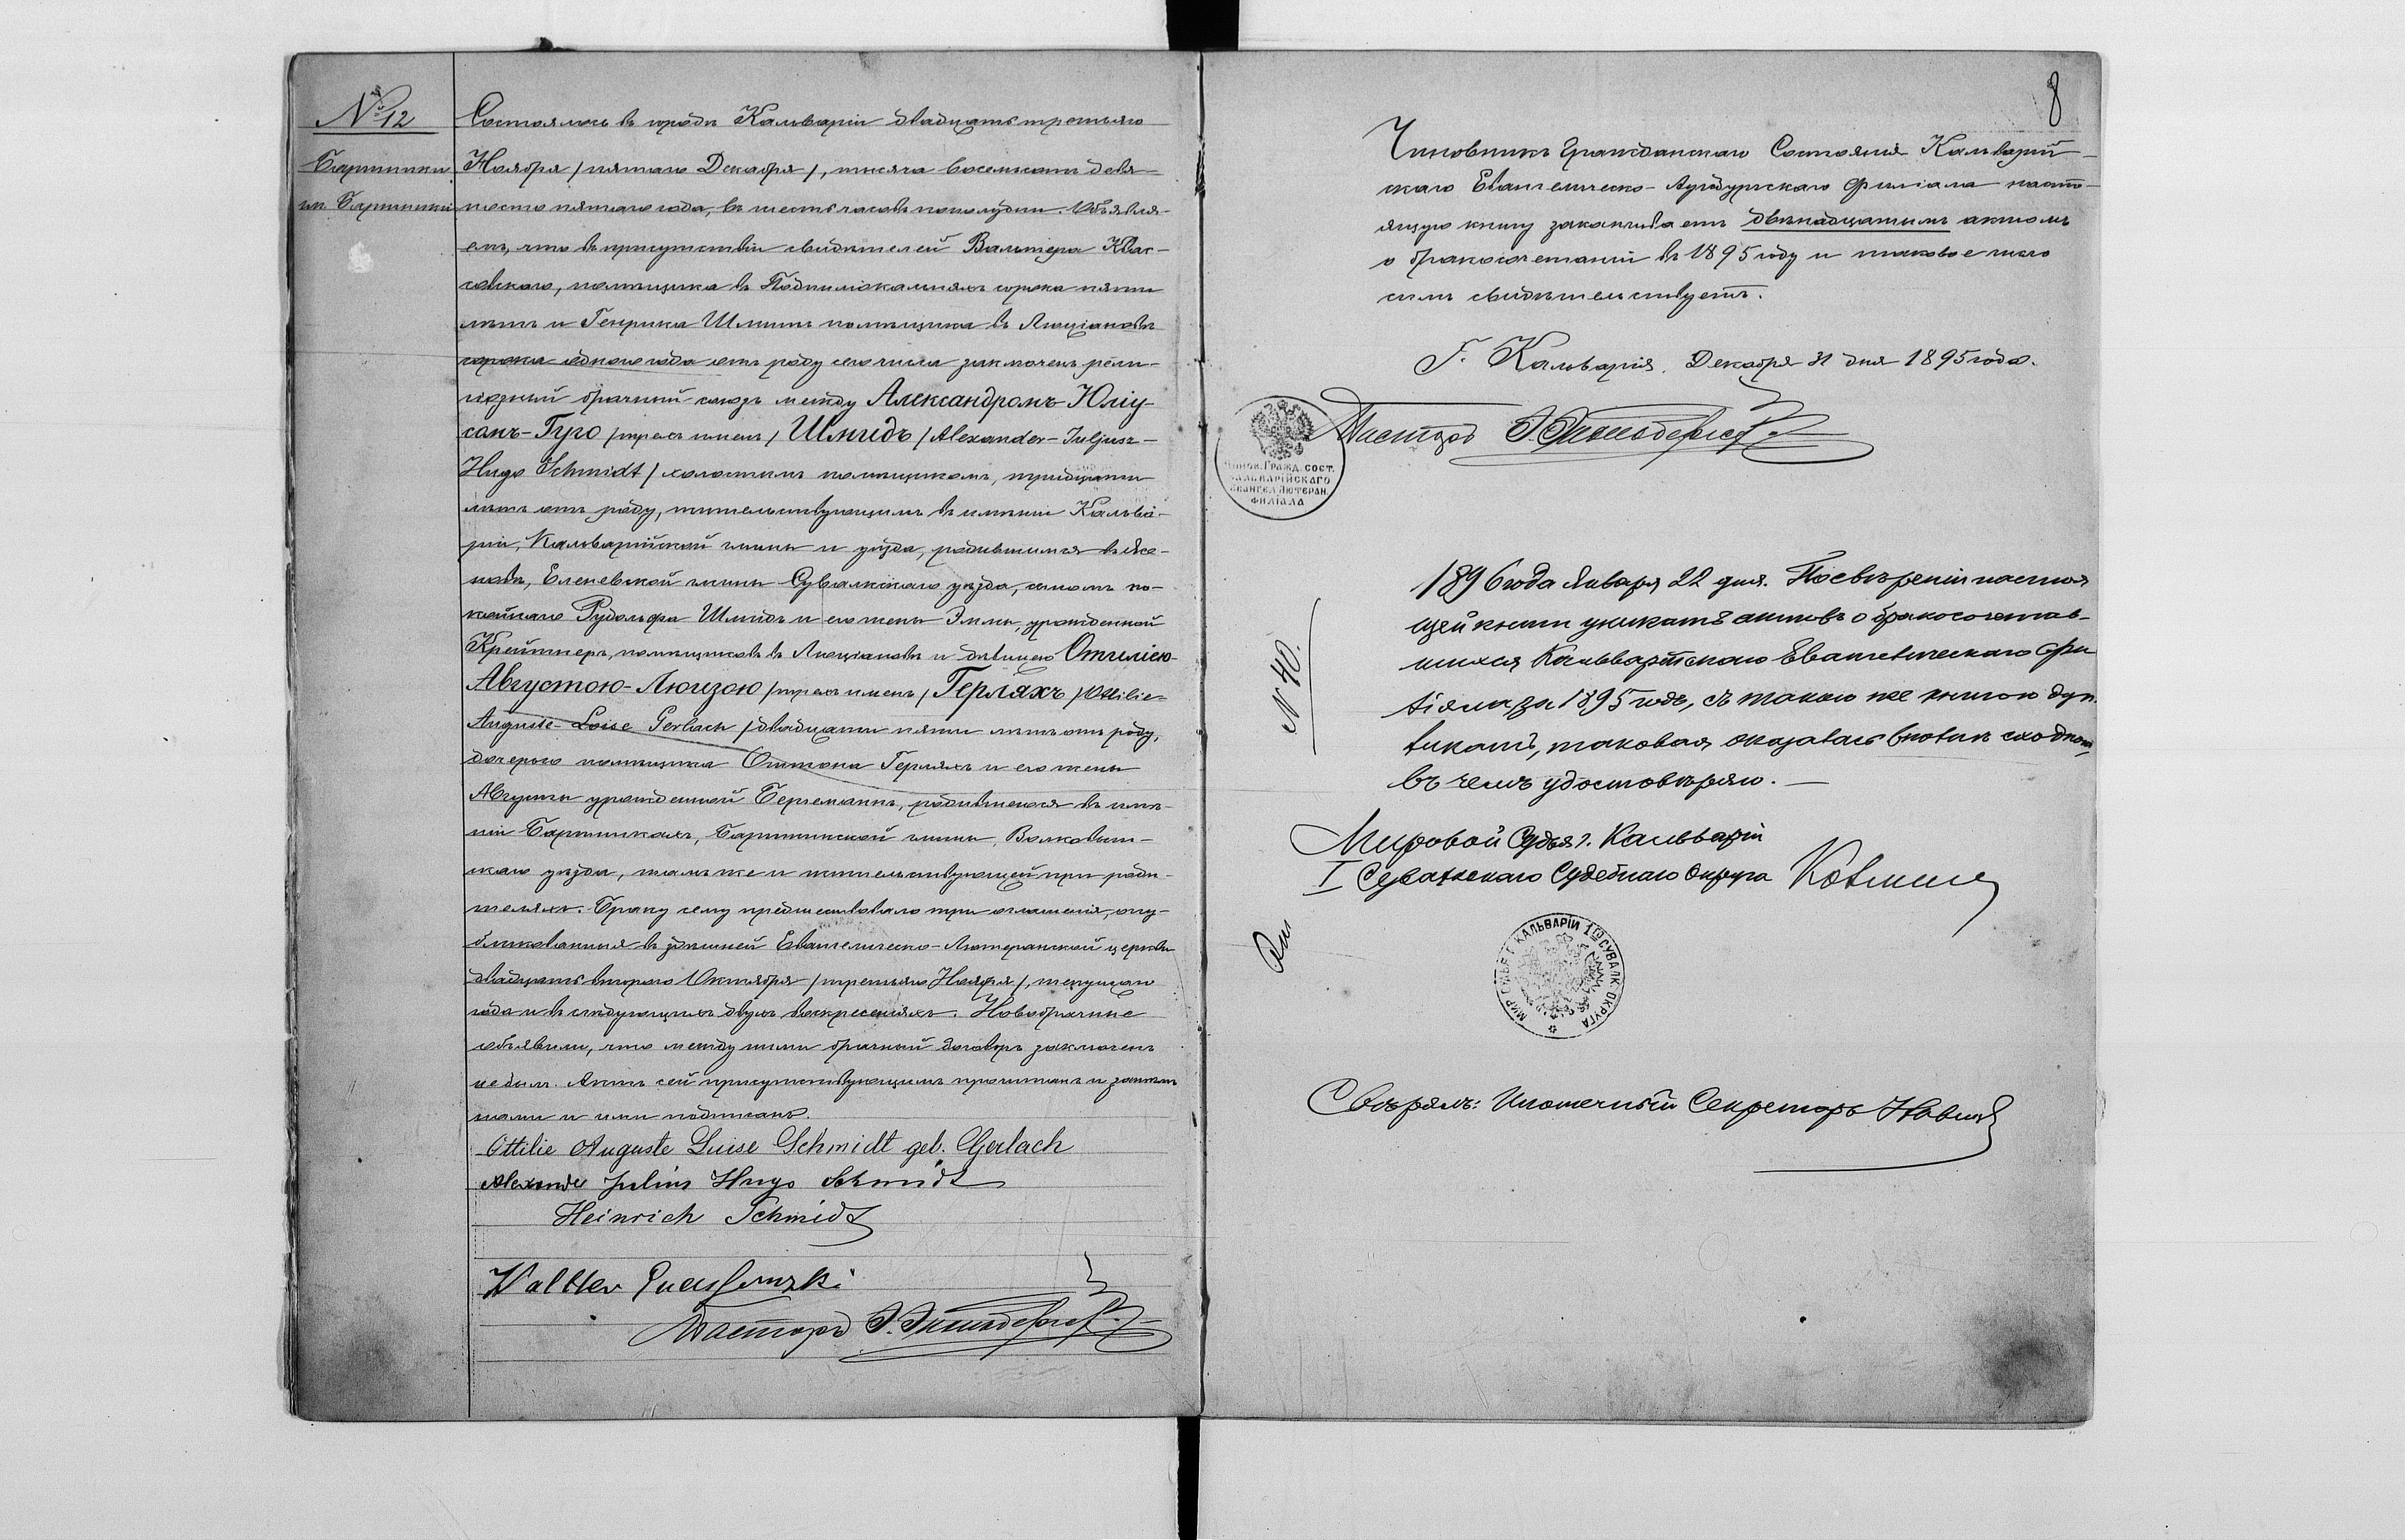 № 12
Бартники
им. Бартники
Состоялось въ городѣ Кальваріи двадцать третьяго
Ноября /пятаго Декабря/, тысяча восемьсотъ девя-
носто пятаго года, въ шесть часовъ пополудни. Объявля-
емъ, что въ присутствіи свидѣтелей Вальтера Квас-
совскаго, помѣщика въ сорока пяти
лѣтъ и Генриха Шмитъ помѣщика въ Люціановѣ
сорока одного года отъ роду сего числа заключенъ рели-
гіозный брачный союзъ между Александромъ-Юліу-
сомъ-Гуго /трехъ именъ/ Шмидъ /Alexander-Juljusz-
Hugo Schmidt/ холостымъ помѣщикомъ, тридцати
лѣтъ отъ роду, жительствующимъ въ имѣніи Кальва-
ріи, Кальварійской гмины и уѣзда, родившимся въ
Еленевской гмины Сувалкскаго уѣзда, сыномъ по-
койнаго Рудольфа Шмидъ и его жены Эммы, урожденной
помѣщиковъ въ Люціановѣ и дѣвицею Отиліею-
Августою-Люизою /трехъ именъ/ Герляхъ /Ottilie-
Auguste-Loise Gerlach/ двадцати пяти лѣтъ отъ роду,
дочерью помѣщика Оттона Герляхъ и его жены
Августы урожденной Бергеманнъ, родившеюся въ имѣ-
ніи Бартникахъ, Бартникской гмины, Волковыш-
скаго уѣзда, тамъ же и жительствующей при роди-
теляхъ. Браку сему предшествовало три оглашенія, опу-
бликованныя въ здѣшней Евангелическо-Лютеранской церкви
двадцать второго Октября /третьяго Ноября/, текущаго
года и въ слѣдующихъ двухъ воскресеніяхъ. Новобрачные
объявили, что между ними брачный договоръ заключенъ
не былъ. Актъ сей присутствующимъ прочитанъ и затѣмъ
нами и ими подписанъ.
Ottilie Auguste Luise Schmidt geb. Gerlach
Alexander Julius Hugo Schmidt
Heinrich Schmidt
Walther
Пасторъ
8
Чиновникъ Гражданскаго Состоянія Кальварій-
скаго Евангелическо-Аугсбургскаго Филіала насто-
ящую книгу заканчиваетъ двѣнадцатымъ актомъ
о бракосочетаніи въ 1895 году и таковое число
симъ свидѣтельствуетъ.
Г. Кальварія, Декабря 31 дня 1895 года.
Пасторъ
ЧИНОВ. ГРАЖД. СОСТ.
КАЛЬВАРІЙСКАГО
ЕВАНГЕЛ. ЛЮТЕРАН.
ФИЛІАЛА
№ 40.
1896 года Января 22 дня. По свѣреніи настоя
щей книги уникатъ актовъ о бракосочетав-
шихся Кальварійскаго Евангелическаго Фи
ліяла за 1895 годъ, съ такою же книгою дуп-
ликатъ, таковая оказалась вполнѣ сходною,
въ чемъ удостовѣряю. —
Мировой Судья г. Кальваріи
I Сувалкскаго Судебнаго Округа
МИР. СУДЬЯ Г. КАЛЬВАРІИ 1го СУВАЛК. ОКРУГА
Свѣрялъ: Ипотечный Секретарь